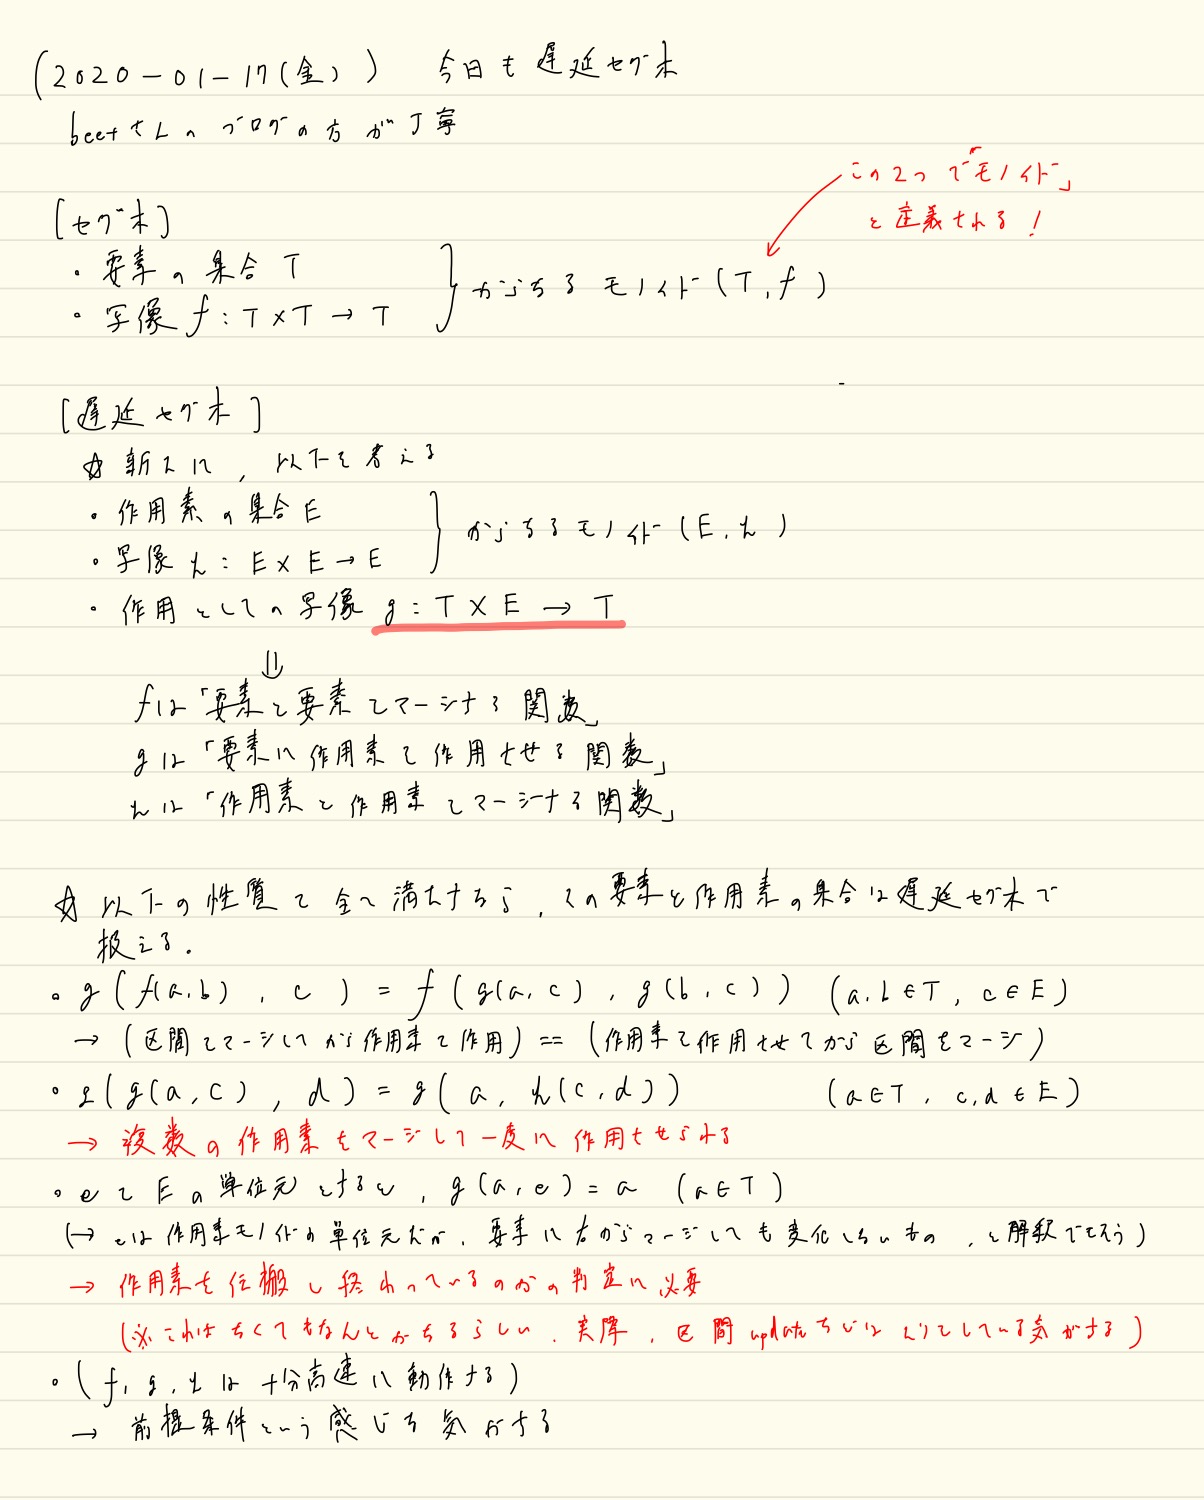 (2020-01-17(金))　今日も遅延セグ木
beetさんのブログの方が丁寧
この2つで「モノイド」
と定義される！
[セグ木]
・要素の集合 T
・写像 f : T×T → T
からなるモノイド(T, f)
[遅延セグ木]
☆ 新たに, 以下を考える
・作用素の集合 E
・写像 h : E×E → E
からなるモノイド(E, h)
・作用としての写像 g : T×E → T
⇓
fは「要素と要素をマージする関数」
gは「要素に作用素を作用させる関数」
hは「作用素と作用素をマージする関数」
☆ 以下の性質を全て満たすなら, その要素と作用素の集合は遅延セグ木で
扱える.
・g(f(a,b), c) = f(g(a,c), g(b,c))　(a,b∈T, c∈E)
→ (区間をマージしてから作用素を作用) == (作用素を作用させてから区間をマージ)
・g(g(a,c), d) = g(a, h(c,d))　(a∈T, c,d∈E)
→ 複数の作用素をマージして一度に作用させられる
・eをEの単位元とすると, g(a,e) = a　(a∈T)
(→ eは作用素モノイドの単位元だが, 要素に右からマージしても変化しないもの, と解釈できそう)
→ 作用素を伝搬し終わっているのかの判定に必要
(※これはなくてもなんとかなるらしい. 実際, 区間updateなどは してしている気がする)
・(f, g, h は十分高速に動作する)
→ 前提条件という感じな気がする